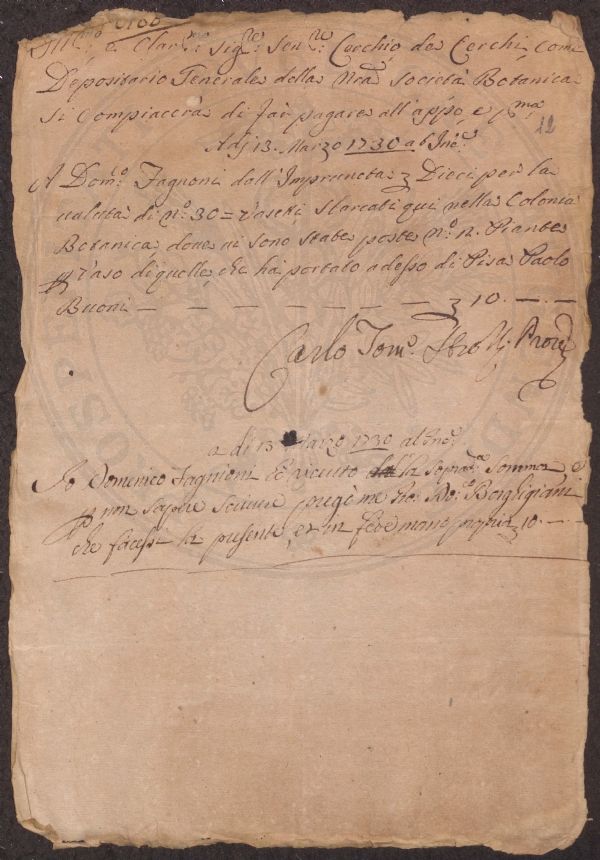 Ill.mo e Clar.mo Sig.re Sen.re Cerchio de Cerchi, come
Depositario Generale della Nr̃a Società Botanica
si compiacerà di far pagare all'app.o, e p.ma
12
Adj 13. Marzo 1730 ab Inc.e
A Dom.o Fagnioni dall'Impruneta Dieci per la
valuta di n.o 30= Vasetti scarcati qui nella Colonia
Botanica dove vi sono state poste n.o Piante
Vaso di quelle, che hà portato adesso di Pisa Paolo
Buoni — — — — — — — — 10. — —
Carlo Tom.o Strozzi Prov.e
a di 13 Marzo 1730 ab Inc.e
Io Domenico Fagnioni ò ricevuto la soprad.a somma, e
p non sapere scivere pregò me
che facessi la presente, et in fede mano propria 10. — —